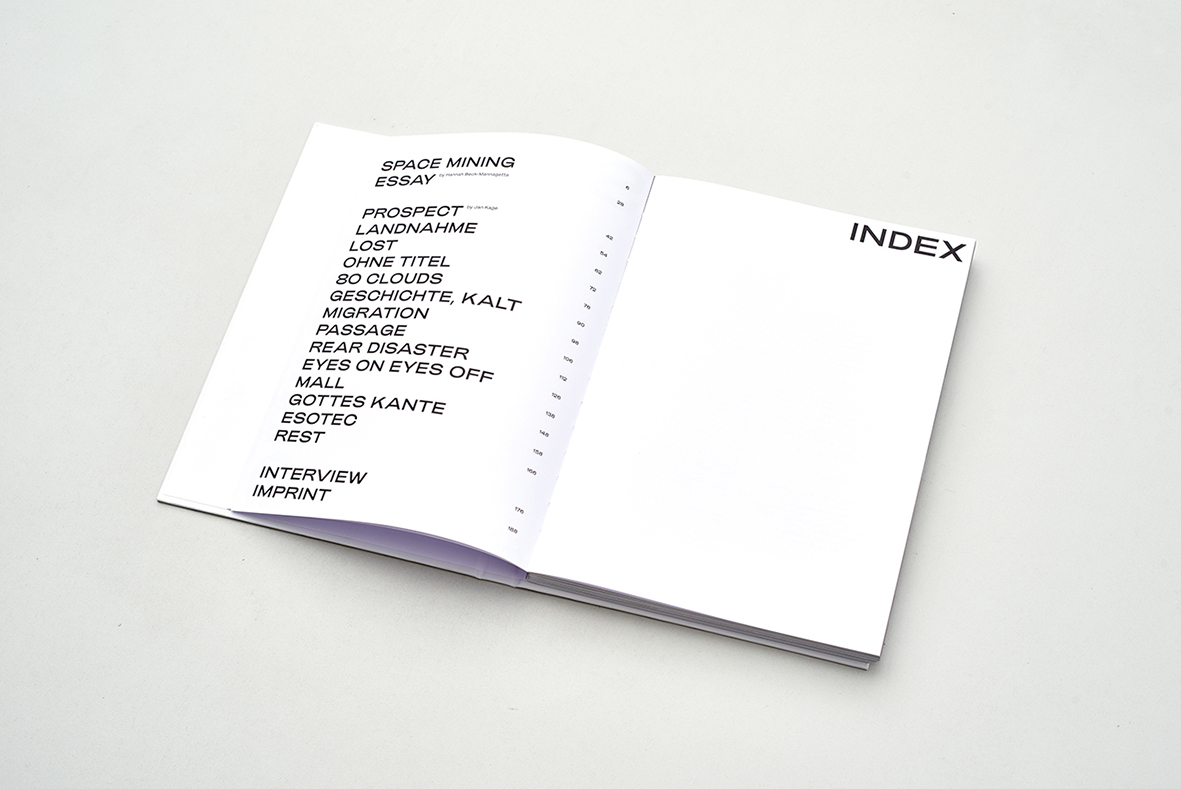 SPACE MINING 6
ESSAY by Hannah Beck-Mannagetta
PROSPECT by Jan Kage 42
LANDNAHME 54
LOST 62
OHNE TITEL 72
80 CLOUDS 76
GESCHICHTE, KALT 90
MIGRATION 98
PASSAGE 106
REAR DISASTER 112
EYES ON EYES OFF 126
MALL 138
GOTTES KANTE 148
ESOTEC 158
REST 166
INTERVIEW 176
IMPRINT 188
INDEX